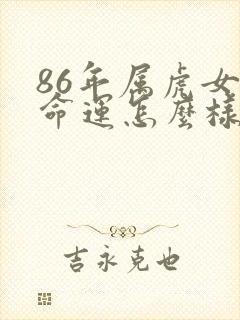 86年属虎女
命運怎麼樣
吉永克也